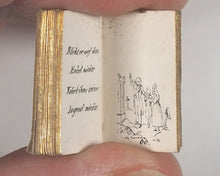 Blickt er auf dem
Enkel wieder
Kehrt ihm seine
Jugend wieder.
60.